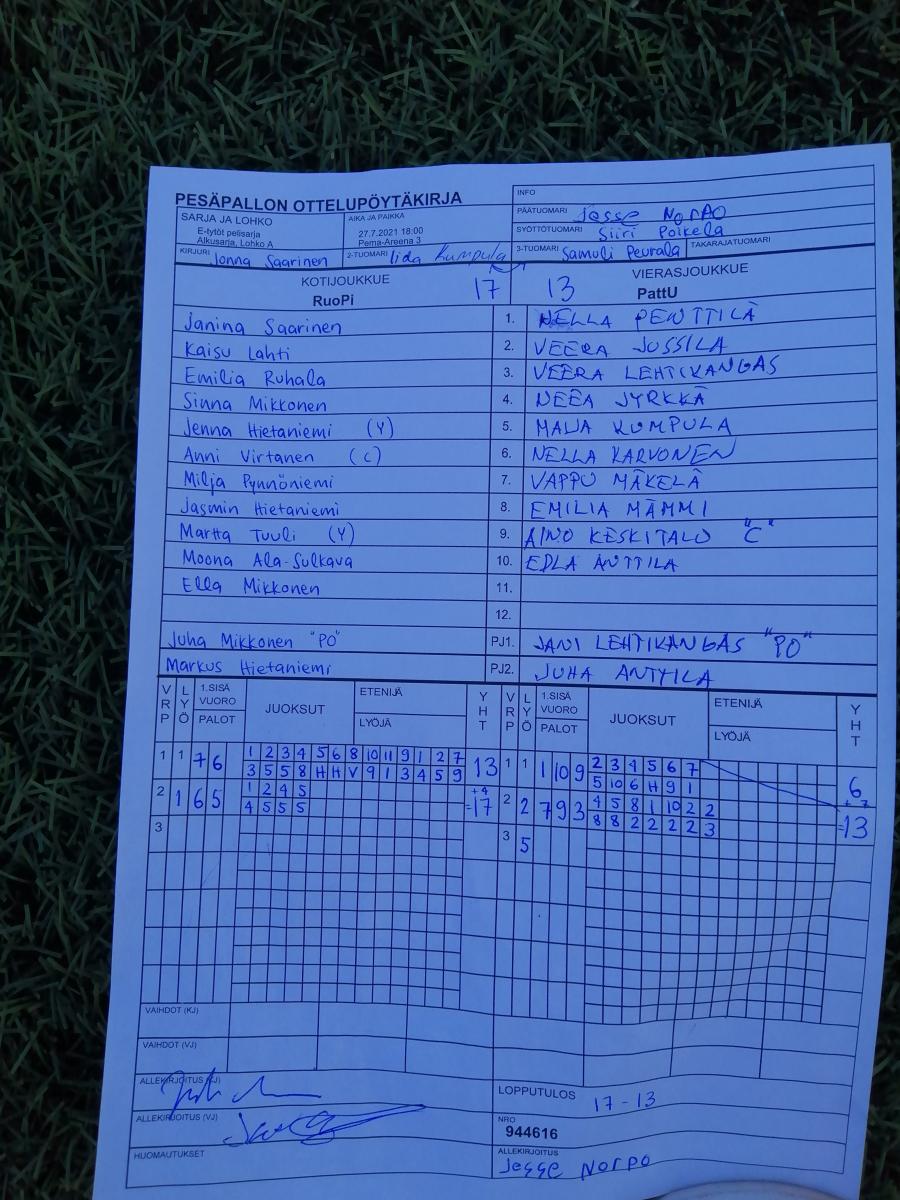 PESÄPALLON OTTELUPÖYTÄKIRJA
INFO
SARJA JA LOHKO
E-tytöt pelisarja
Alkusarja, Lohko A
AIKA JA PAIKKA
27.7.2021 18:00
Pema-Areena 3
PÄÄTUOMARI Jesse Norpo
SYÖTTÖTUOMARI Siiri Poikela
KIRJURI Jonna Saarinen 2-TUOMARI Iida Kumpula 3-TUOMARI Samuli Peurala TAKARAJATUOMARI
KOTIJOUKKUE 17 13 VIERASJOUKKUE
RuoPi PattU
Janina Saarinen 1. NELLA PENTTILÄ
Kaisu Lahti 2. VEERA JUSSILA
Emilia Ruhala 3. VEERA LEHTIKANGAS
Sinna Mikkonen 4. NEEA JYRKKÄ
Jenna Hietaniemi (Y) 5. MAIJA KUMPULA
Anni Virtanen (c) 6. NELLA KARVONEN
Milja Pynnöniemi 7. VAPPU MÄKELÄ
Jasmin Hietaniemi 8. EMILIA MÄMMI
Martta Tuuli (Y) 9. AINO KESKITALO "C"
Moona Ala-Sulkava 10. EDLA ANTTILA
Ella Mikkonen 11.
12.
Juha Mikkonen "PO" PJ1. JANI LEHTIKANGAS "PO"
Markus Hietaniemi PJ2. JUHA ANTTILA
VRP LYÖ 1.SISÄ VUORO PALOT JUOKSUT ETENIJÄ LYÖJÄ YHT VRP LYÖ 1.SISÄ VUORO PALOT JUOKSUT ETENIJÄ LYÖJÄ YHT
1 1 7 6 1 2 3 4 5 6 8 10 11 9 1 2 7 13 1 1 1 10 9 2 3 4 5 6 7 6
3 5 5 8 H H V 9 1 3 4 5 9 5 10 6 H 9 1
2 1 6 5 1 2 4 5 +4 =17 2 2 7 9 3 4 5 8 1 10 2 2 +7 =13
4 5 5 5 8 8 2 2 2 2 3
3 3 5
VAIHDOT (KJ)
VAIHDOT (VJ)
ALLEKIRJOITUS (KJ)
LOPPUTULOS 17-13
ALLEKIRJOITUS (VJ)
NRO
944616
HUOMAUTUKSET
ALLEKIRJOITUS
Jesse Norpo